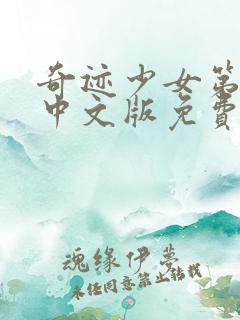 奇迹少女第
中文版免费
魂缘伊梦
未经同意禁止转载